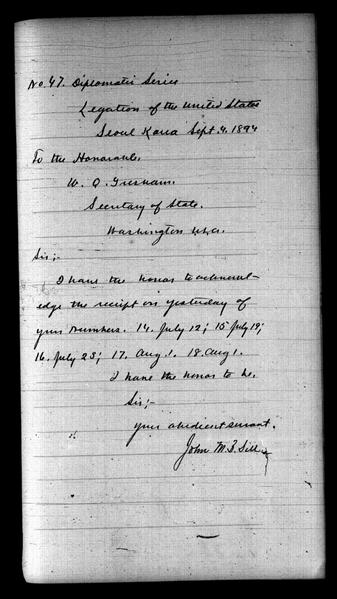 No. 47. Diplomatic Series
Legation of the United States
Seoul Korea Sept. 4. 1894
To the Honorable.
W. Q. Gresham.
Secretary of State.
Washington
Sir;-
I have the honor to acknowl-
edge the receipt on yesterday of
your Numbers. 14. July 12; 15 July 19;
16. July 23; 17. Aug. 1. 18. Aug 1.
I have the honor to be.
Sir;-
your obedient servant.
John M. B. Sill